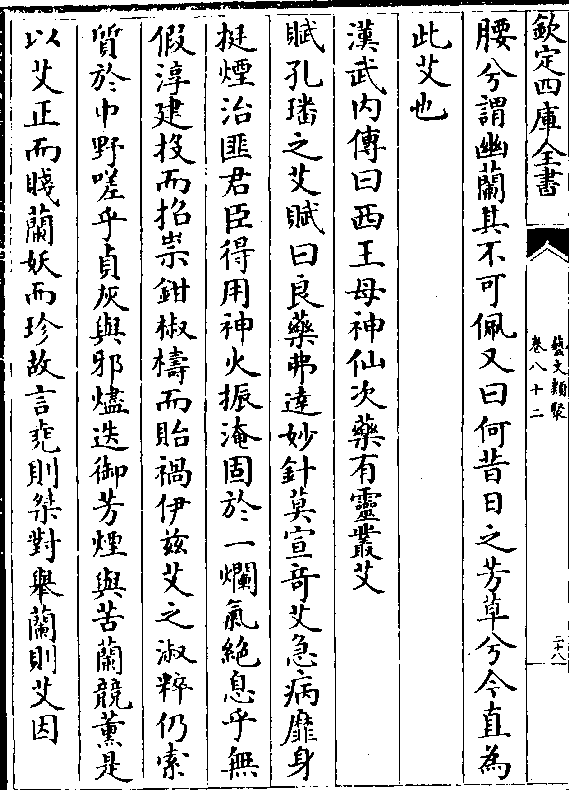 欽定四庫全書
藝文類聚
卷八十二
二十八
腰兮謂幽蘭其不可佩又曰何昔日之芳草兮今直為
此艾也
漢武內傳曰西王母神仙次藥有靈叢艾
賦孔璠之艾賦曰良藥弗達妙針莫宣奇艾急病靡身
挺煙治匪君臣得用神火振淹固於一爛氣絶息乎無
假淳建投而招祟鉗椒檮而貽禍伊茲艾之淑粹仍索
質於中野嗟乎貞灰與邪燼迭御芳煙與苦蘭競薰是
以艾正而賤蘭妖而珍故言堯則桀對舉蘭則艾因